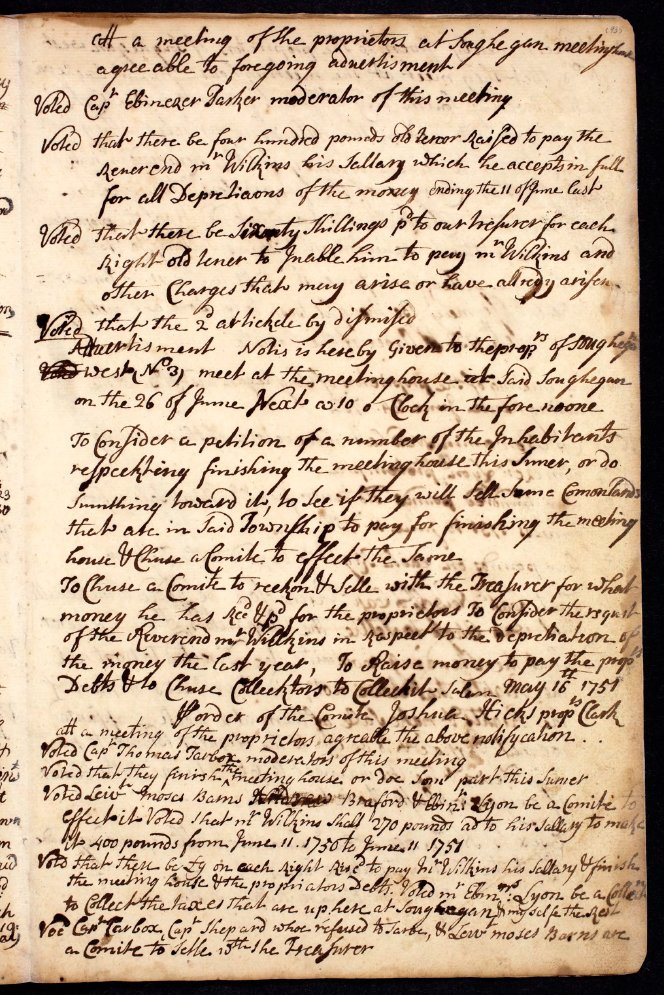 att a meeting of the proprietors at Soughegan meetinghouse
agreeable to foregoing advertisment
Voted Capt Ebinezer Parker moderator of this meeting
Voted that there be four hundred pounds old tenor Raised to pay the
Reverend mr Wilkins his Sallary which he accepts in full
for all Depretiaons of the money ending the 11 of June last
Voted that there be Sixty Shillings pd to our tresurer for each
Right old tener to Inable him to pay mr Wilkins and
other Charges that may arise or have allredy arisen
Voted that the 2d artickele by dismised
Advertisment Notis is hereby Given to the proprs of Soughegan
west (No 3) meet at the meeting house at Said Soughegan
on the 26 of June Next a 10 o Clock in the fore noone
To Consider a petition of a number of the Inhabitants
respeckting finishing the meeting house this Sumer, or do
Sumthing toward it, to See if they will Sell Sume Comon lands
that are in Said Township to pay for finishing the meeting
house & Chuse a Comite to effect the Same
To Chuse a Comite to reckon & Selle with the Treasurer for what
money he has Recd & pd for the proprietors To Consider the request
of the Reverend mr Wilkins in Raspect to the depretiation of
the money the last year, To Raise money to pay the proprs
Debts & to Chuse Collecktors to Colleckit Salem May 16th 1751
order of the Comite Joshua Hicks proprs Clark
att a meeting of the proprietors agreable the above notifycation.
Voted Capt Thomas Tarbox moderators of this meeting
Voted that they finish the meeting house or doe Som part this Sumer
Voted Leiut Moses Barns Braford & Ebinr Lyon be a Comite to
effect it Voted that mr Wilkins Shall 270 pounds ad to his Sallary to make
it 400 pounds from June 11. 1750 to June 11 1751
Voted that there be £9 on each Right Rised to pay Mr Wilkins his Sallary & finish
the meeting house & the propriators Debts. Voted mr Ebinr Lyon be a Collecter
to Collect the taxes that are up here at Soughegan & my selfe the Rest
Voed Capt Tarbox, Capt Shepard whoe refused to Sarve, & Lewt moses Barns are
a Comite to Selle with the Treasurer